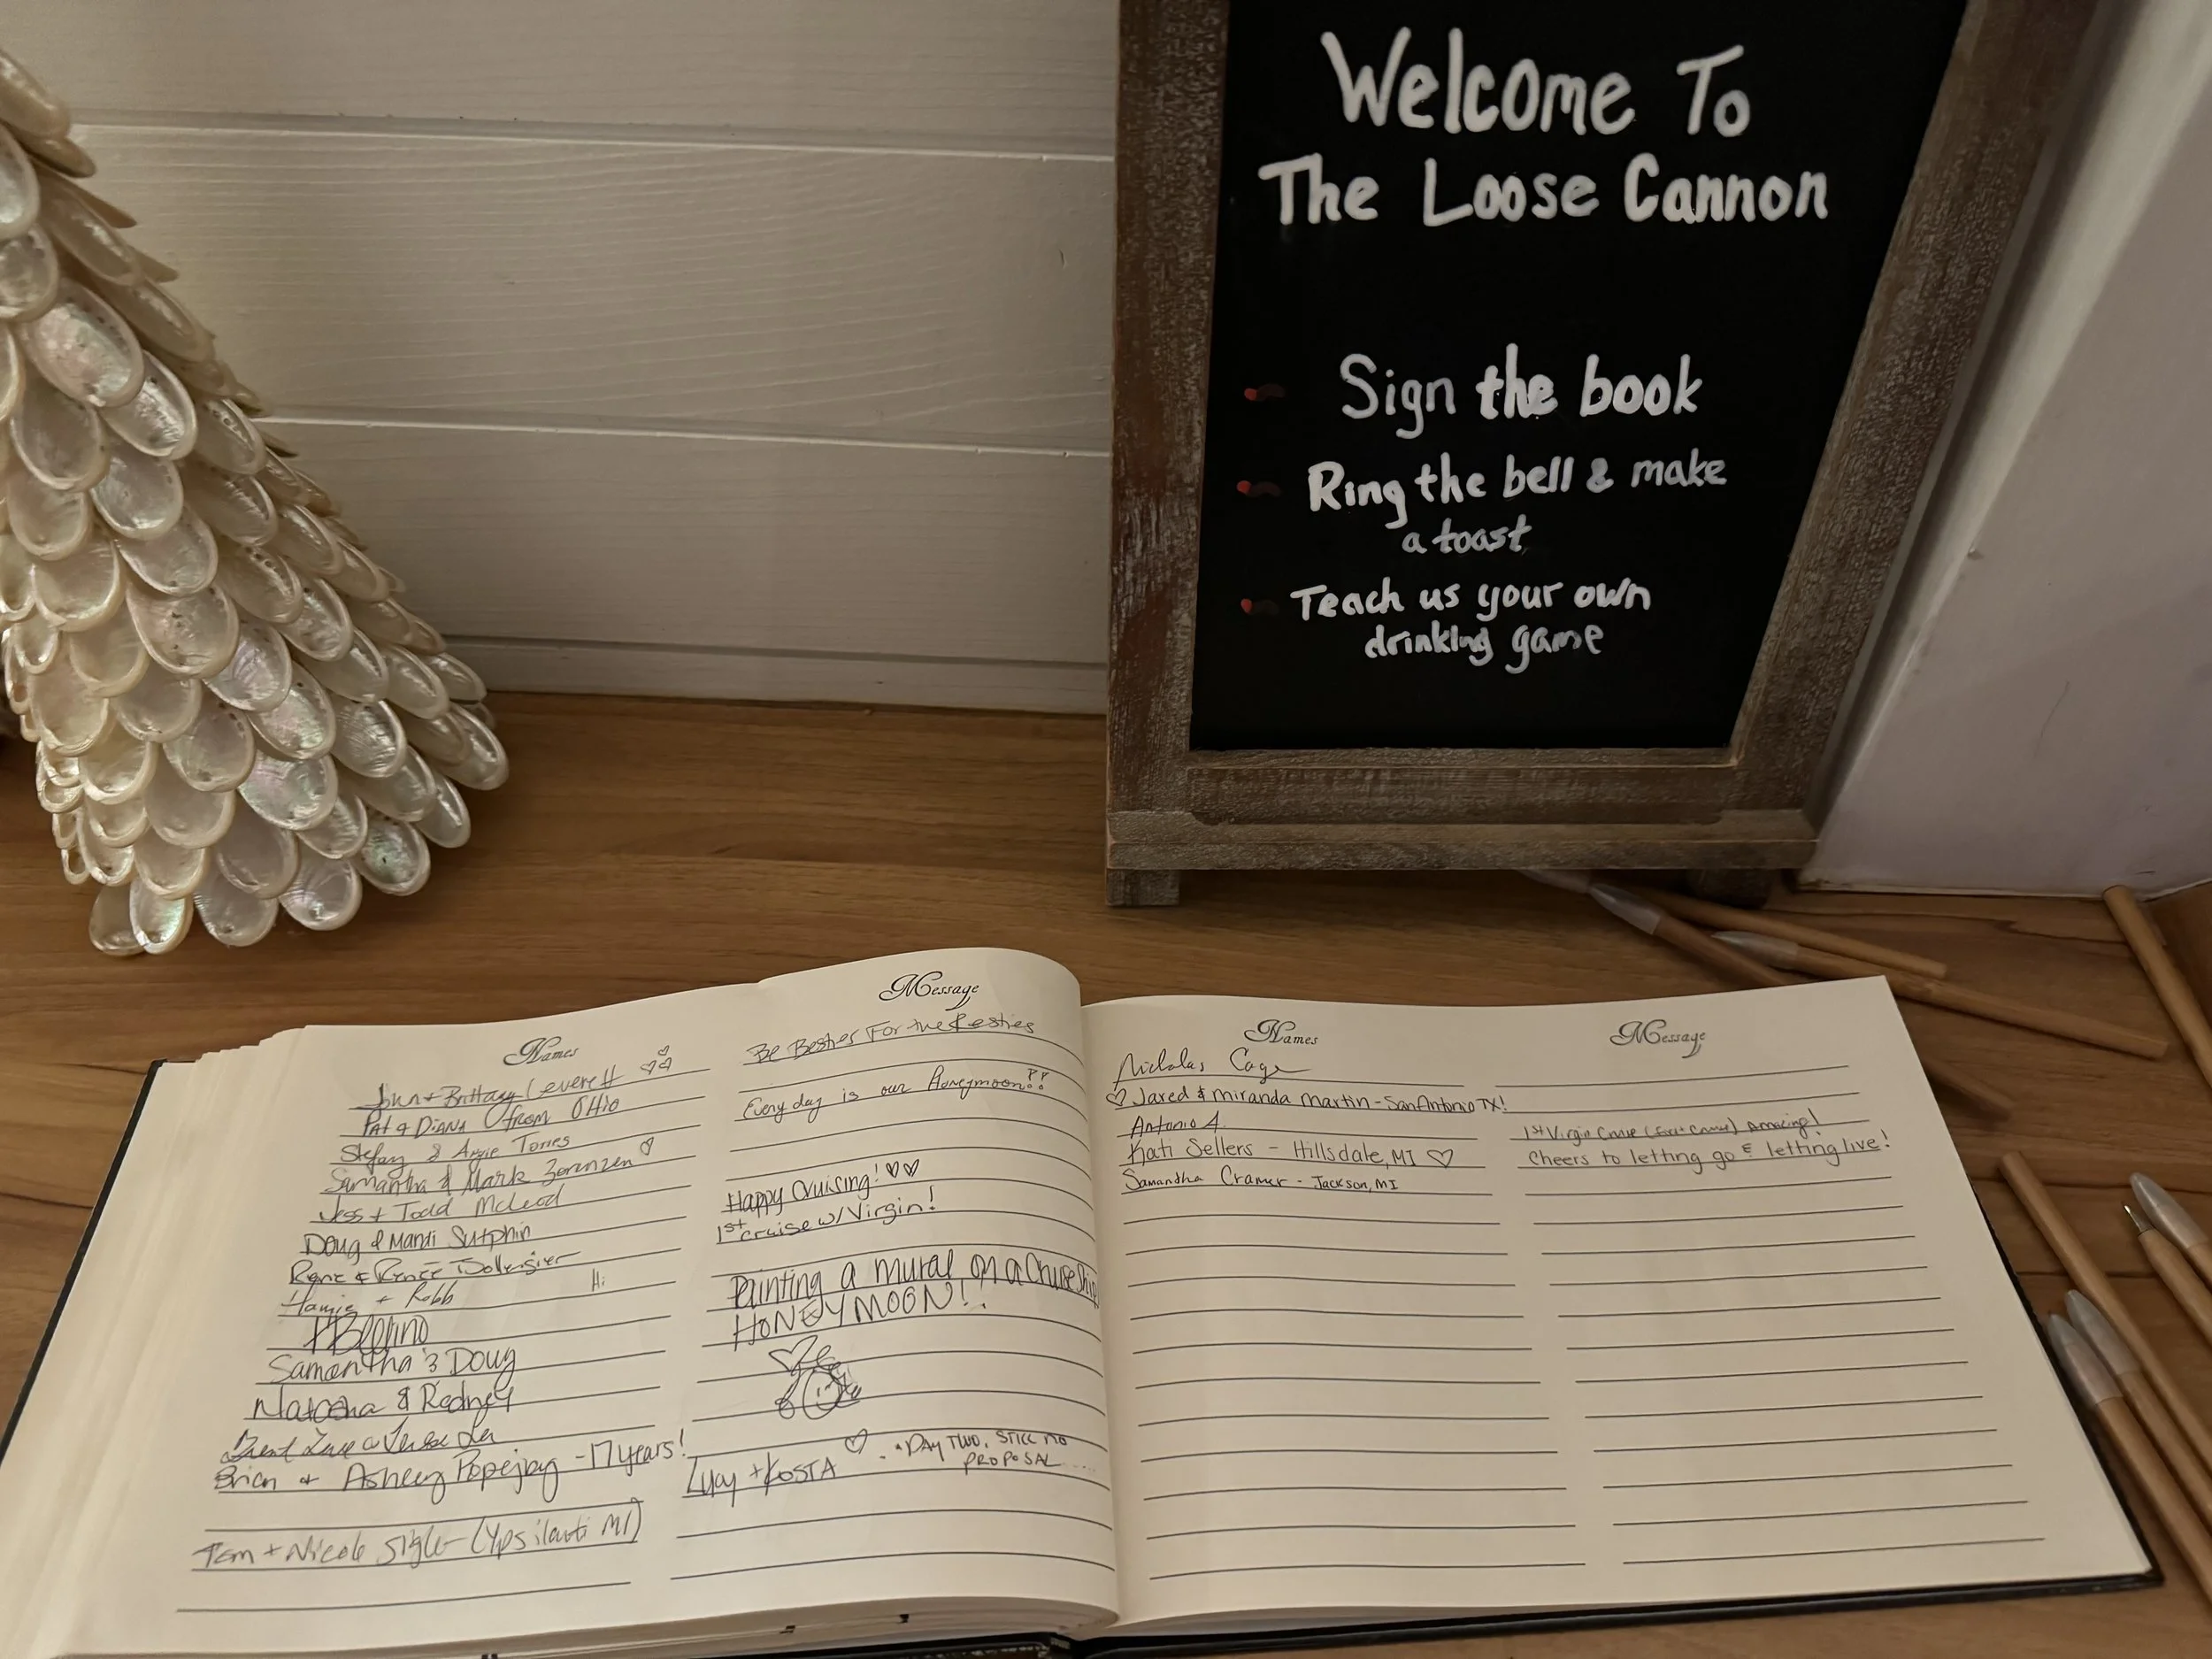 Welcome To
The Loose Cannon
Sign the book
Ring the bell & make
a toast
Teach us your own
drinking game
Names
John + Brittany Leverett
Pat & Diana from OHio
Stefany & Angie Torres
Samantha & Mark Zorenzen
Jess + Todd McLeod
Doug & Mandi Sutphin
Rene & Renée
+ Robb Hi
Samantha & Doug
Natasha & Rodney
Brian + Ashley Popejoy - 17 years!
Tom + Nicole (Ypsilanti MI)
Message
Be Besties For the Resties
Every day is our Honeymoon!!
Happy Cruising! ♡♡
1st cruise w/ Virgin!
Painting a mural on a Cruise Ship
HONEYMOON!!
Lucy + KOSTA ♡ DAY TWO, STILL NO
PROPOSAL....
Names
Nickolas Cage
♡ Jared & Miranda Martin - San Antonio TX!
Antonio A
Kati Sellers - Hillsdale, MI ♡
Samantha Cramer - Jackson, MI
Message
1st Virgin Cruise (first cruise) amazing!
Cheers to letting go & letting live!